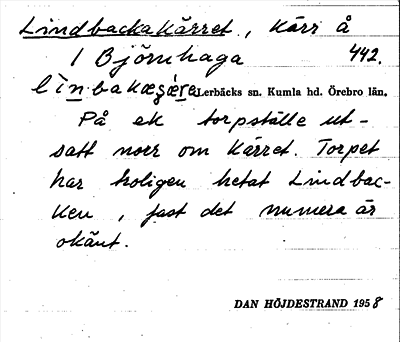 Lindbackakärret, Kärr å
1 Björnhaga 442.
Lerbäcks sn. Kumla hd. Örebro län,
På ek torpställe ut-
satt norr om kärret. Torpet
har troligen hetat Lindbac-
ken, fast det numera är
okänt.
DAN HÖJDESTRAND 1958